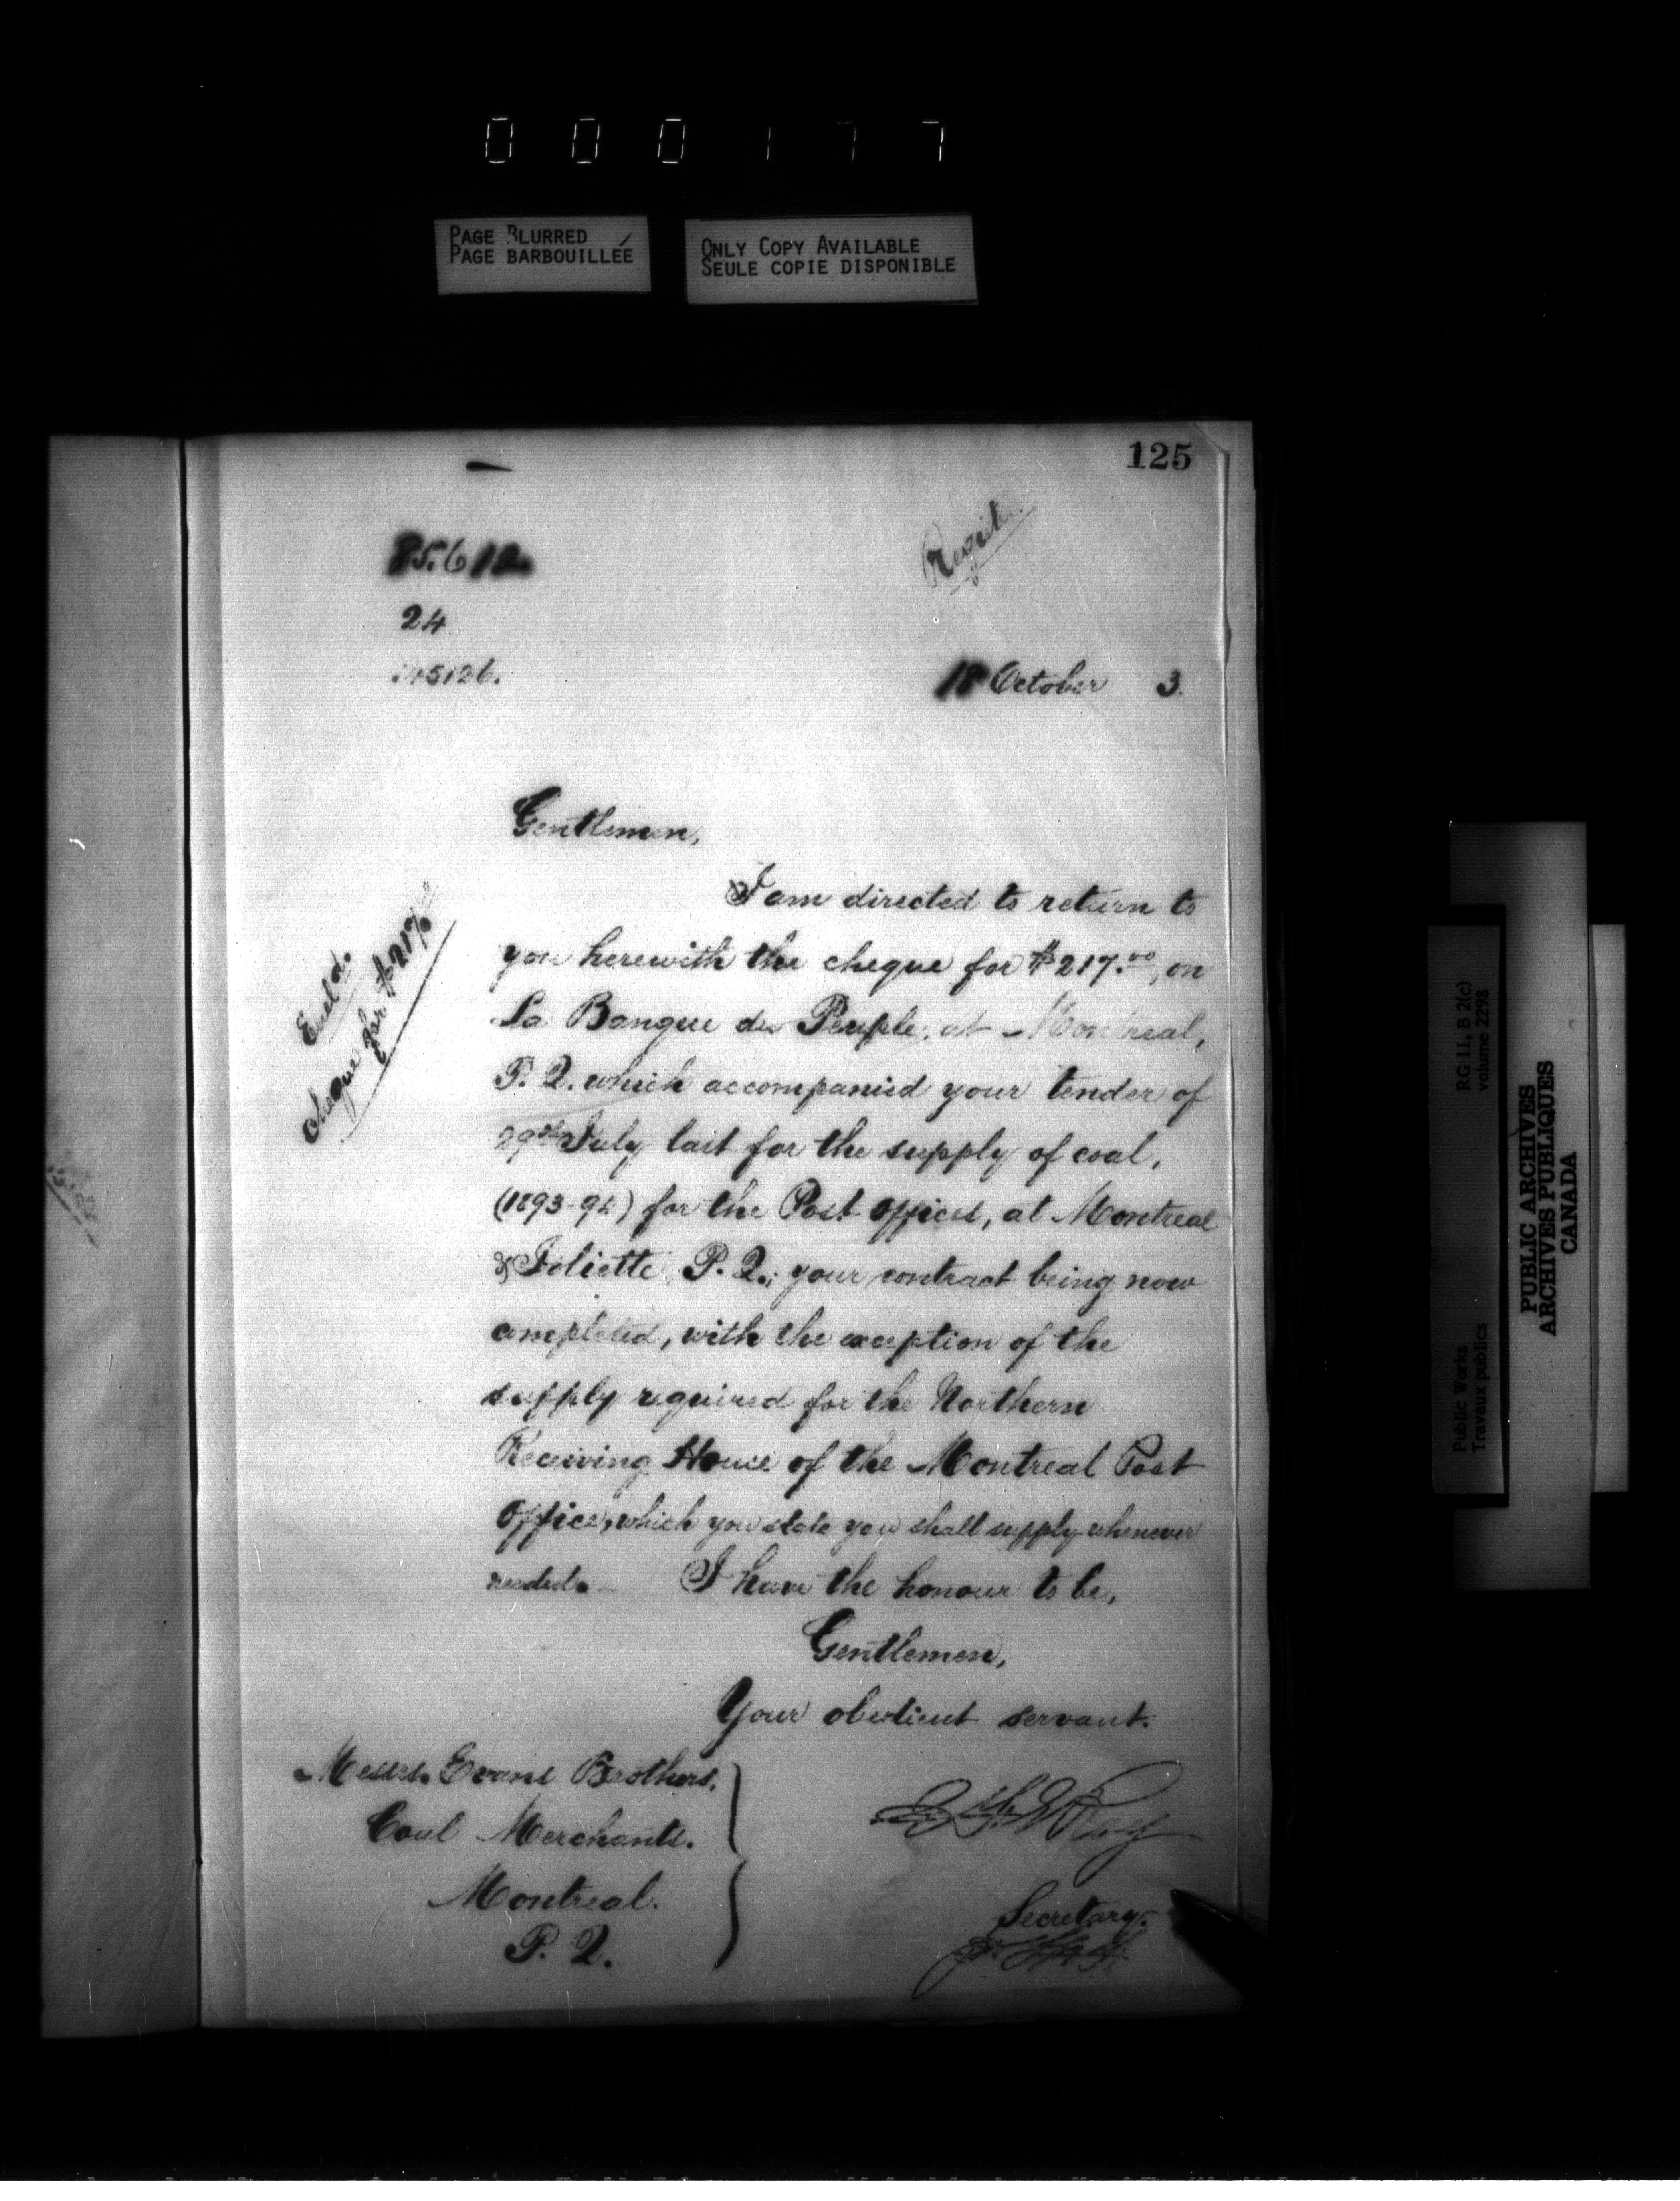 000177
PAGE BLURRED
PAGE BARBOUILLÉE
ONLY COPY AVAILABLE
SEULE COPIE DISPONIBLE
125
Register
24
18 October 3.
Gentlemen,
Encld.
cheque for $217.00
I am directed to return to
you herewith the cheque for $217.00, on
La Banque du Peuple, at Montreal,
P.Q. which accompanied your tender of
29th July last for the supply of coal,
(1893-94) for the Post offices, at Montreal
& Joliette P.Q.; your contract being now
completed, with the exception of the
supply required for the Northern
Receiving House of the Montreal Post
Office, which you state you shall supply whenever
needed. — I have the honour to be,
Gentlemen,
Your obedient servant.
Messrs. Evans Brothers,
Coal Merchants.
Montreal.
P.Q.
Secretary.
Public Works
Travaux publics
RG 11, B 2(c)
volume 2298
PUBLIC ARCHIVES
ARCHIVES PUBLIQUES
CANADA